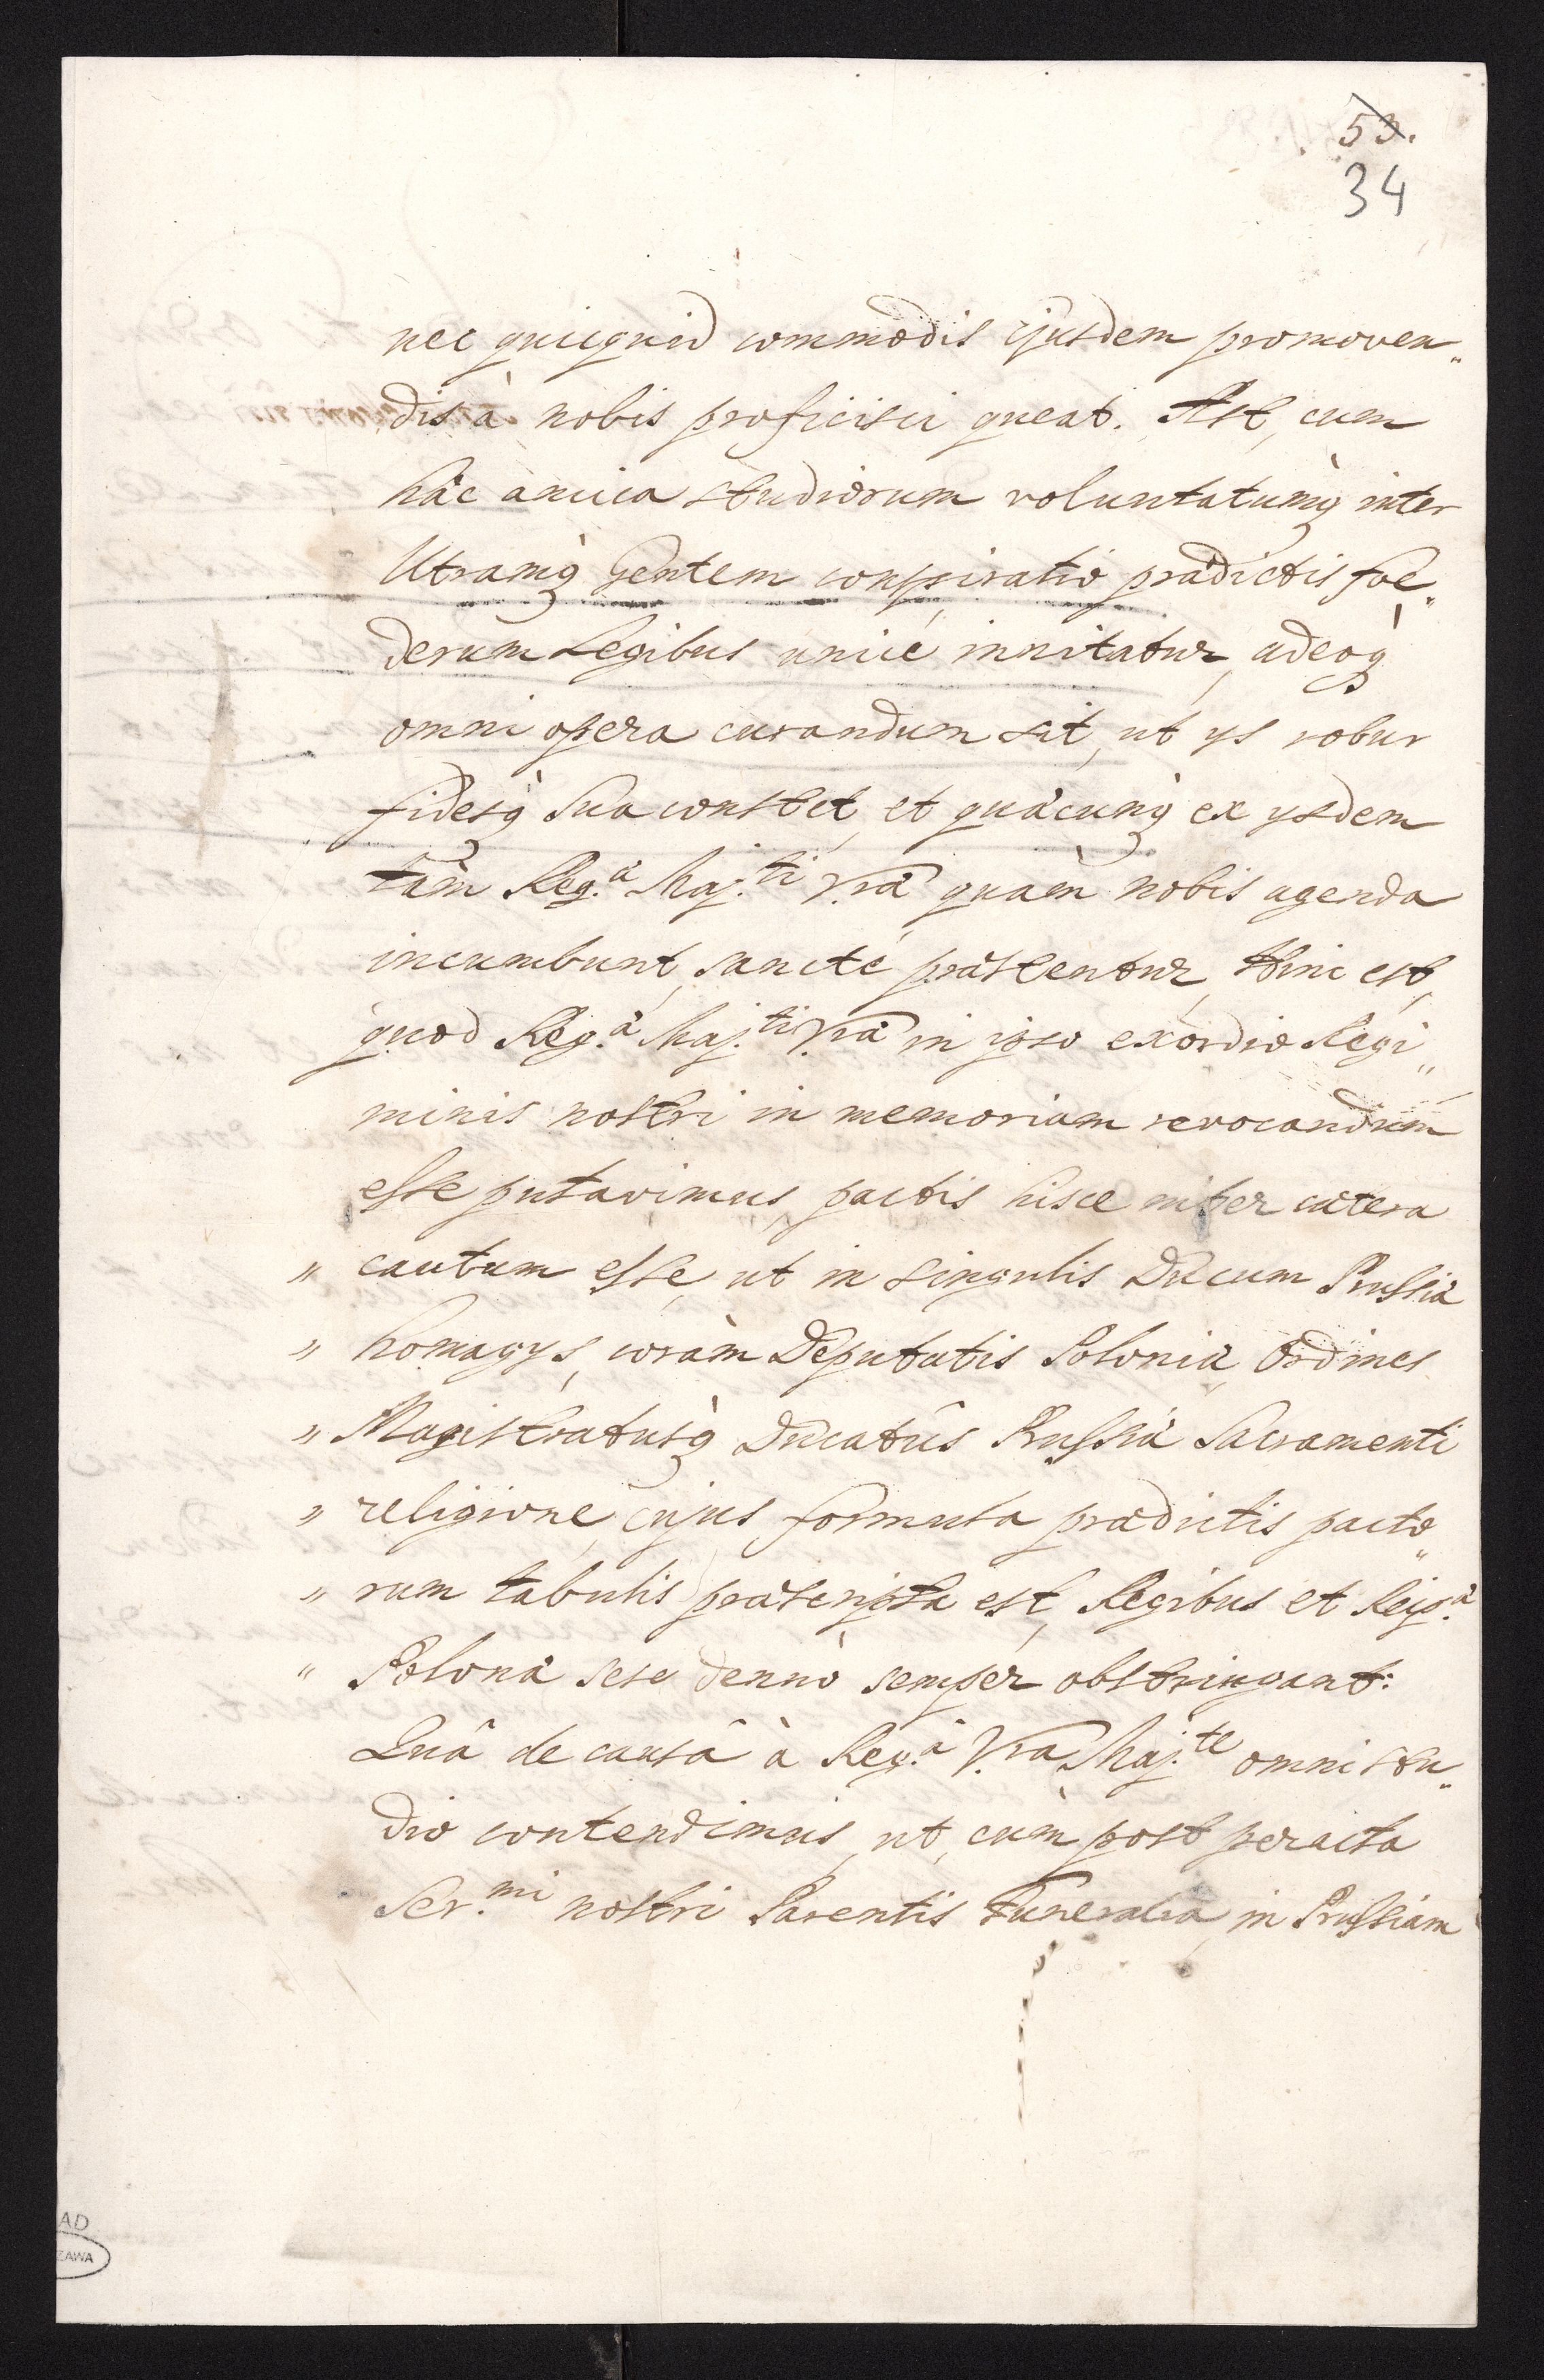 53.
34
nec quicquid commodis ejusdem promoven„
dis à nobis proficisci queat. Ast, cum
hâc amica studiorum voluntatumq́ inter
Utramq́ Gentem conspiratio prædictis foe„
derum Legibus unicé innitatur, adeoq́
omni opera curandum sit, ut ys robur
fidesq́ sua constet, et quæcunq́ ex ysdem
tàm Reg.æ Maj.ti Vræ quàm nobis agenda
incumbunt, sancté præstentur, Hinc est,
quod Reg.æ Maj.ti Vræ in ipso exordio Regi„
minis nostri in memoriam revocandum
esse putavimus, pactis hisce inter cætera
„ cautum esse, ut in singulis Ducum Prussiæ
„ homagys, coràm Deputatis Poloniæ, Ordines
„ Magistratusq́ Ducatûs Prussiæ Sacramenti
„ religione, cujus formula prædictis pacto„
„ rum tabulis præscripta est, Regibus et Reip.æ
„ Polonæ sese denuò semper obstringant:
Quâ de causâ à Reg.â Vra Maj.te omni stu„
dio contendimus, ut, cùm post peracta
Ser.mi nostri Parentis Funeralia, in Prussiam
AD
ZAWA